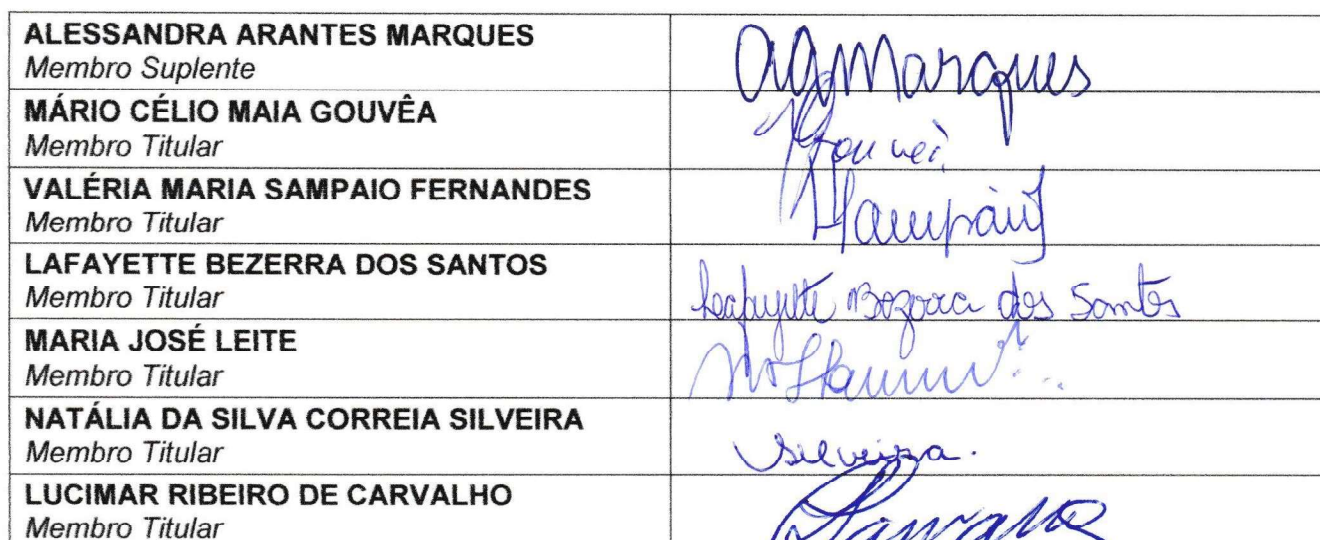 ALESSANDRA ARANTES MARQUES
Membro Suplente
aaMarques
MÁRIO CÉLIO MAIA GOUVÊA
Membro Titular
VALÉRIA MARIA SAMPAIO FERNANDES
Membro Titular
LAFAYETTE BEZERRA DOS SANTOS
Membro Titular
Lafayette Bezerra dos Santos
MARIA JOSÉ LEITE
Membro Titular
NATÁLIA DA SILVA CORREIA SILVEIRA
Membro Titular
Silveira.
LUCIMAR RIBEIRO DE CARVALHO
Membro Titular